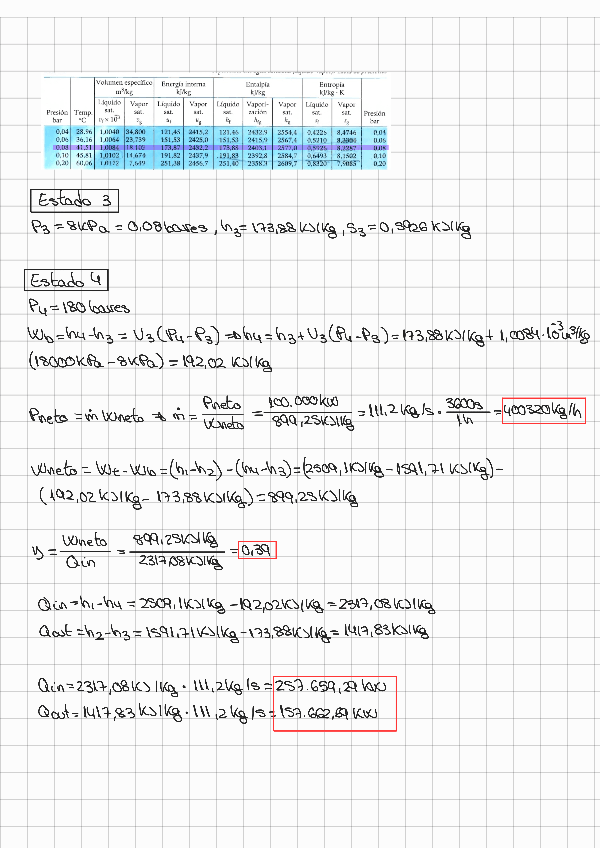 Volumen específico Energía interna Entalpía Entropía
m³/kg kJ/kg kJ/kg kJ/kg · K
Líquido Vapor Líquido Vapor Líquido Vapori- Vapor Líquido Vapor
Presión Temp. sat. sat. sat. sat. sat. zación sat. sat. sat. Presión
bar °C bar
0,04 28,96 1,0040 34,800 121,45 2415,2 121,46 2432,9 2554,4 0,4226 8,4746 0,04
0,06 36,16 1,0064 23,739 151,53 2425,0 151,53 2415,9 2567,4 0,5210 8,3304 0,06
0,08 41,51 1,0084 18,103 173,87 2432,2 173,88 2403,1 2577,0 0,5926 8,2287 0,08
0,10 45,81 1,0102 14,674 191,82 2437,9 191,83 2392,8 2584,7 0,6493 8,1502 0,10
0,20 60,06 1,0172 7,649 251,38 2456,7 251,40 2358,3 2609,7 0,8320 7,9085 0,20
Estado 3
P3 = 8KPa = 0,08 bares , h3 = 173,88 KJ/Kg , S3 = 0,5926 KJ/Kg
Estado 4
P4 = 180 bares
Wb = h4 - h3 = V3 (P4 - P3) => h4 = h3 + V3 (P4 - P3) = 173,88 KJ/Kg + 1,0084 · 10⁻³ m³/Kg
(18000 KPa - 8KPa) = 192,02 KJ/Kg
Pneto = ṁ Wneto → ṁ = Pneto / Wneto = 100.000 KW / 899,25 KJ/Kg = 111,2 Kg/s · 3600s / 1h = 400320 Kg/h
Wneto = Wt - Wb = (h1 - h2) - (h4 - h3) = (2509,1 KJ/Kg - 1591,71 KJ/Kg) -
(192,02 KJ/Kg - 173,88 KJ/Kg) = 899,25 KJ/Kg
η = Wneto / Qin = 899,25 KJ/Kg / 2317,08 KJ/Kg = 0,39
Qin = h1 - h4 = 2509,1 KJ/Kg - 192,02 KJ/Kg = 2317,08 KJ/Kg
Qout = h2 - h3 = 1591,71 KJ/Kg - 173,88 KJ/Kg = 1417,83 KJ/Kg
Qin = 2317,08 KJ/Kg · 111,2 Kg/s = 257.659,29 KW
Qout = 1417,83 KJ/Kg · 111,2 Kg/s = 157.662,69 KW